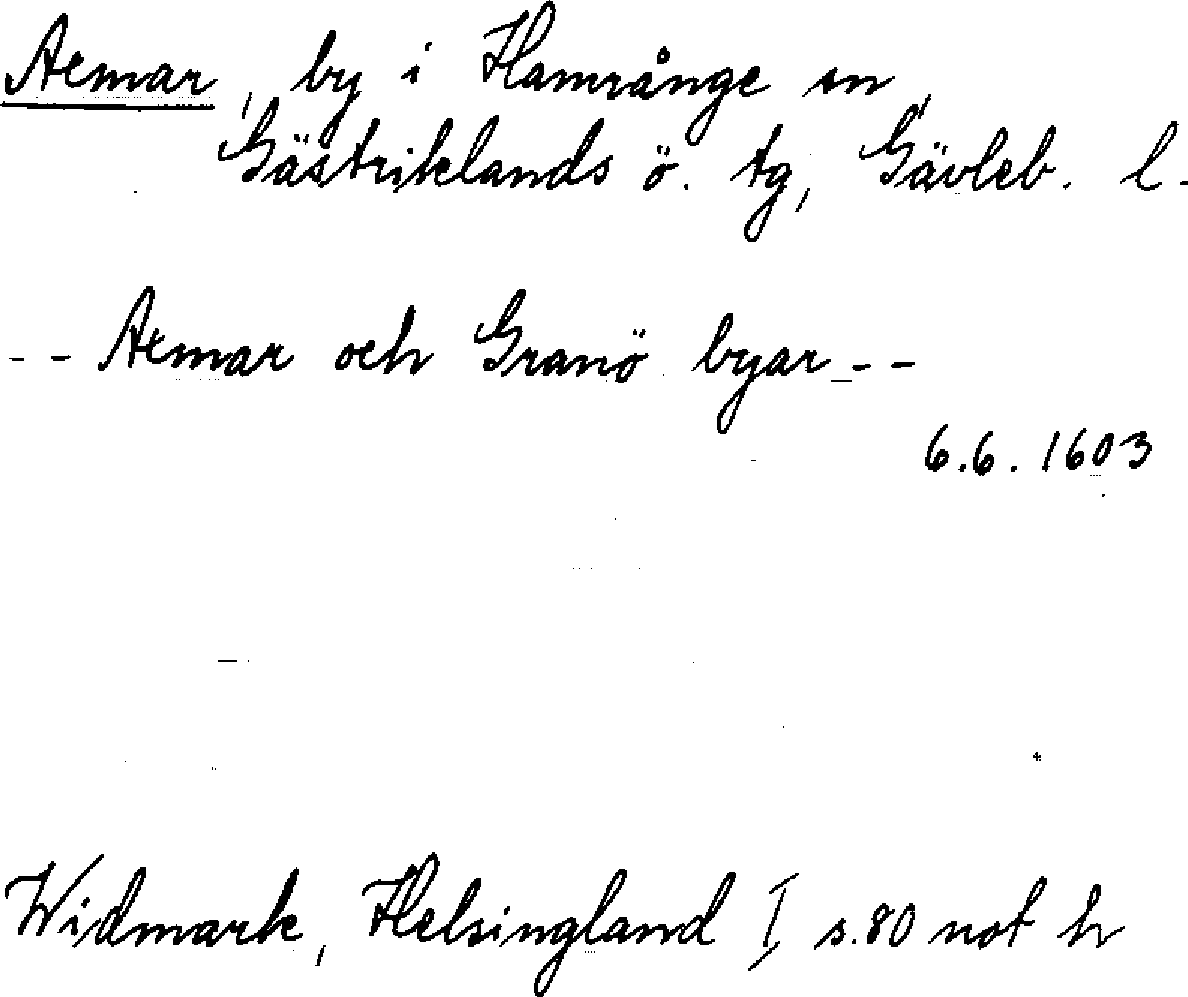 Axmar, by i Hamrånge sn,
Gästriklands ö. tg, Gävleb. l.
- - Axmar och Granö byar - -
6.6. 1603
Widmark, Helsingland I, s. 80 not h